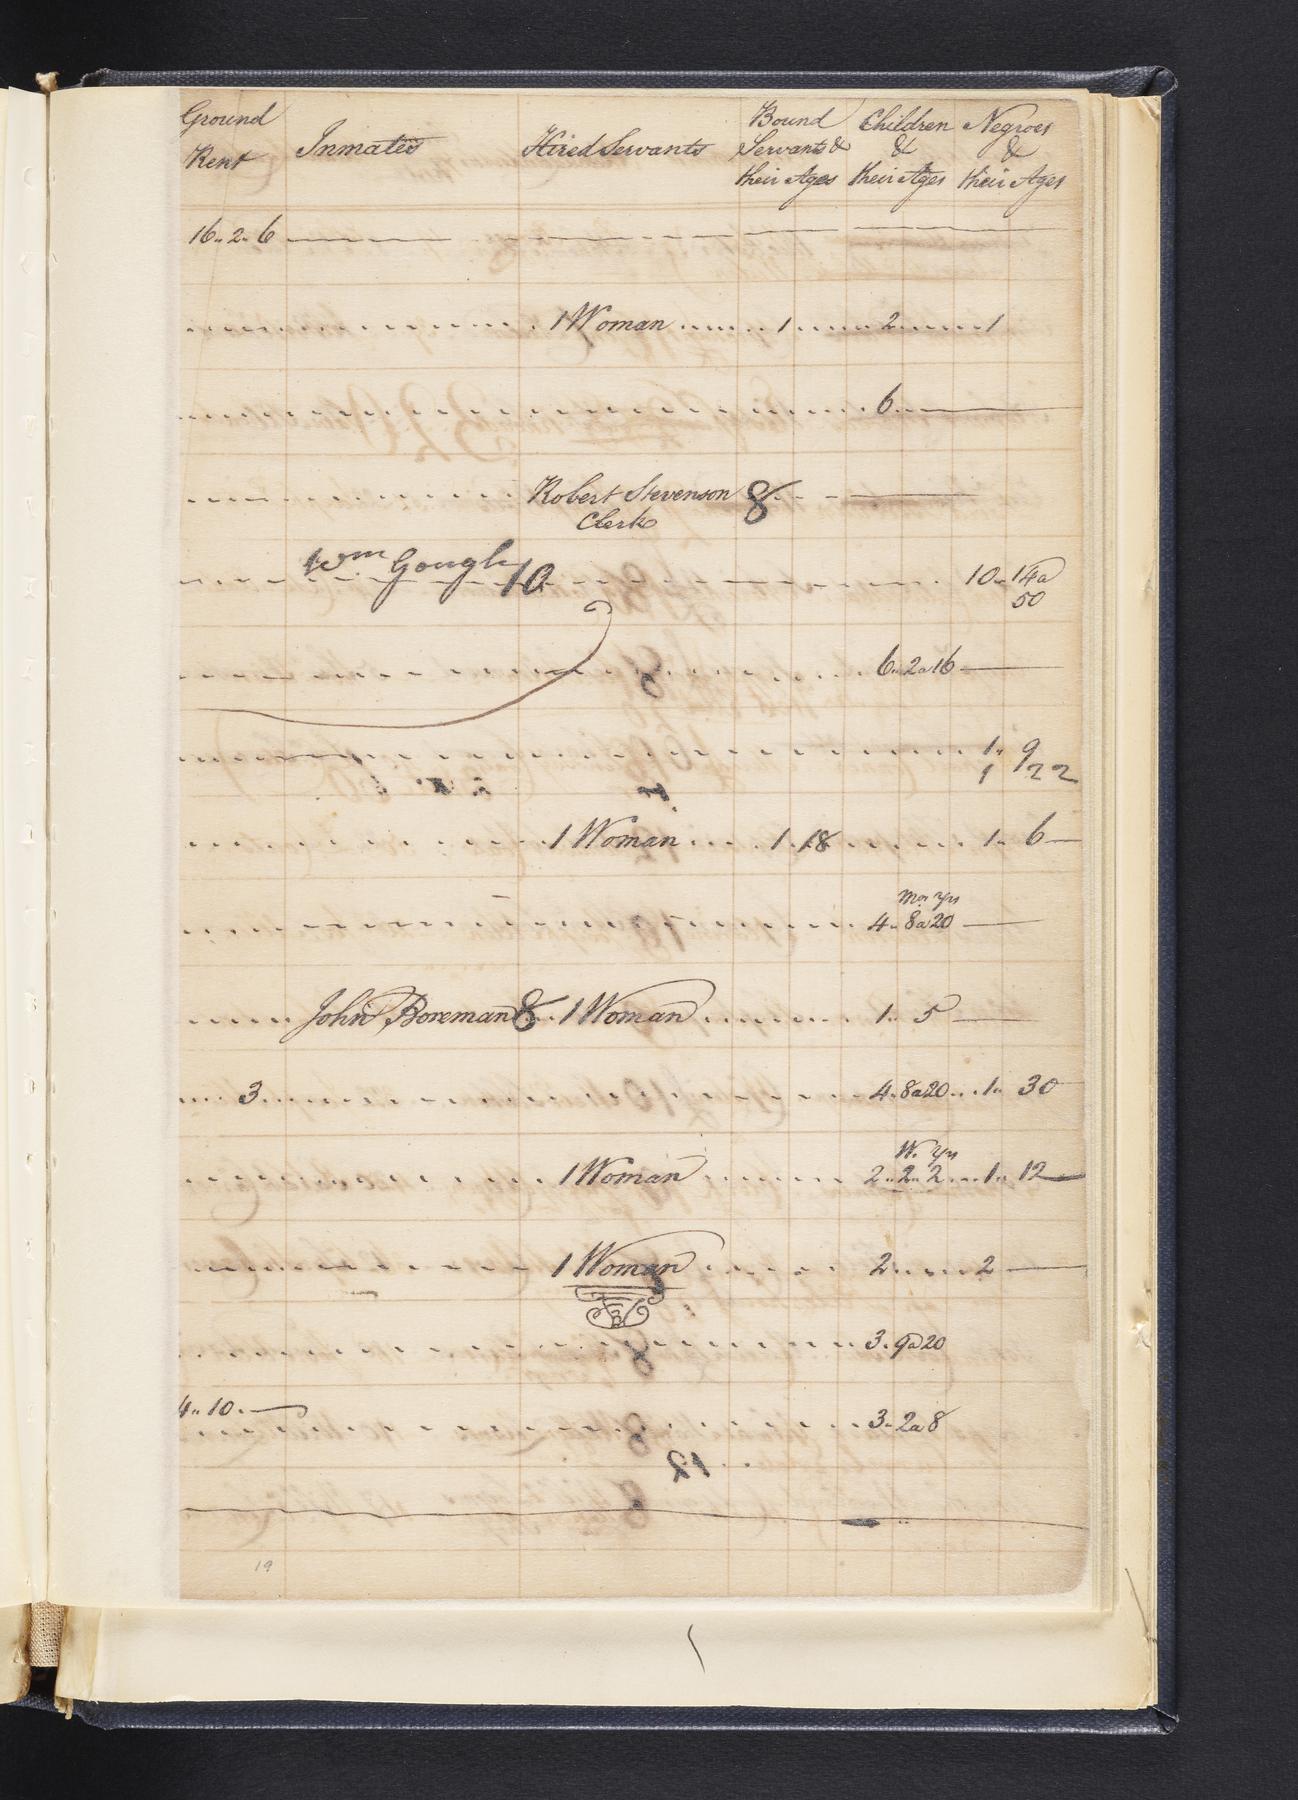 Ground Rent Inmates Hired Servants Bound Servants & their Ages Children & their Ages Negroes & their Ages
16.. 2.. 6
1 Woman 1 2 1
6
Robert Stevenson 8
Clerk
Wm Gough 10 10.. 14a
50
6.. 2a16
1.. 9
1 22
1 Woman 1. 18 1.. 6
Mos Yrs
4.. 8a20
John Boreman 8 1 Woman 1.. 5
3 4.. 8a20 1.. 30
W. Yrs
1 Woman 2.. 2.. 2 1.. 12
1 Woman 2 2
3. 9a20
4.. 10. 3.. 2a8
19